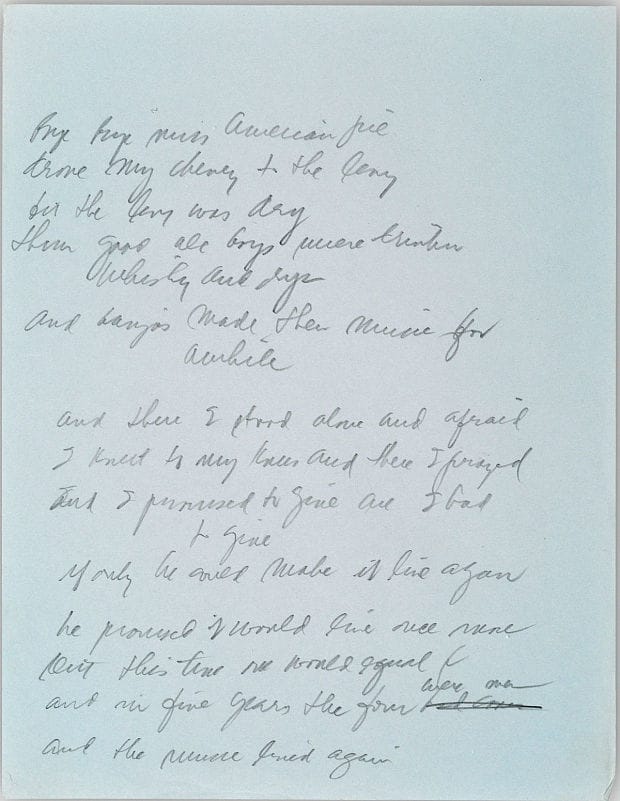 Bye bye miss American pie
drove my chevy to the levy
but the levy was dry
them good ole boys were drinkin
whisky and rye
And banjos made their music for
awhile
and there I stood alone and afraid
I knelt to my knees and there I prayed
And I promised to give all I had
to give
if only he would make it live again
he promised it would live once more
but this time one would equal
were
and in five years the four had come
and the music lived again